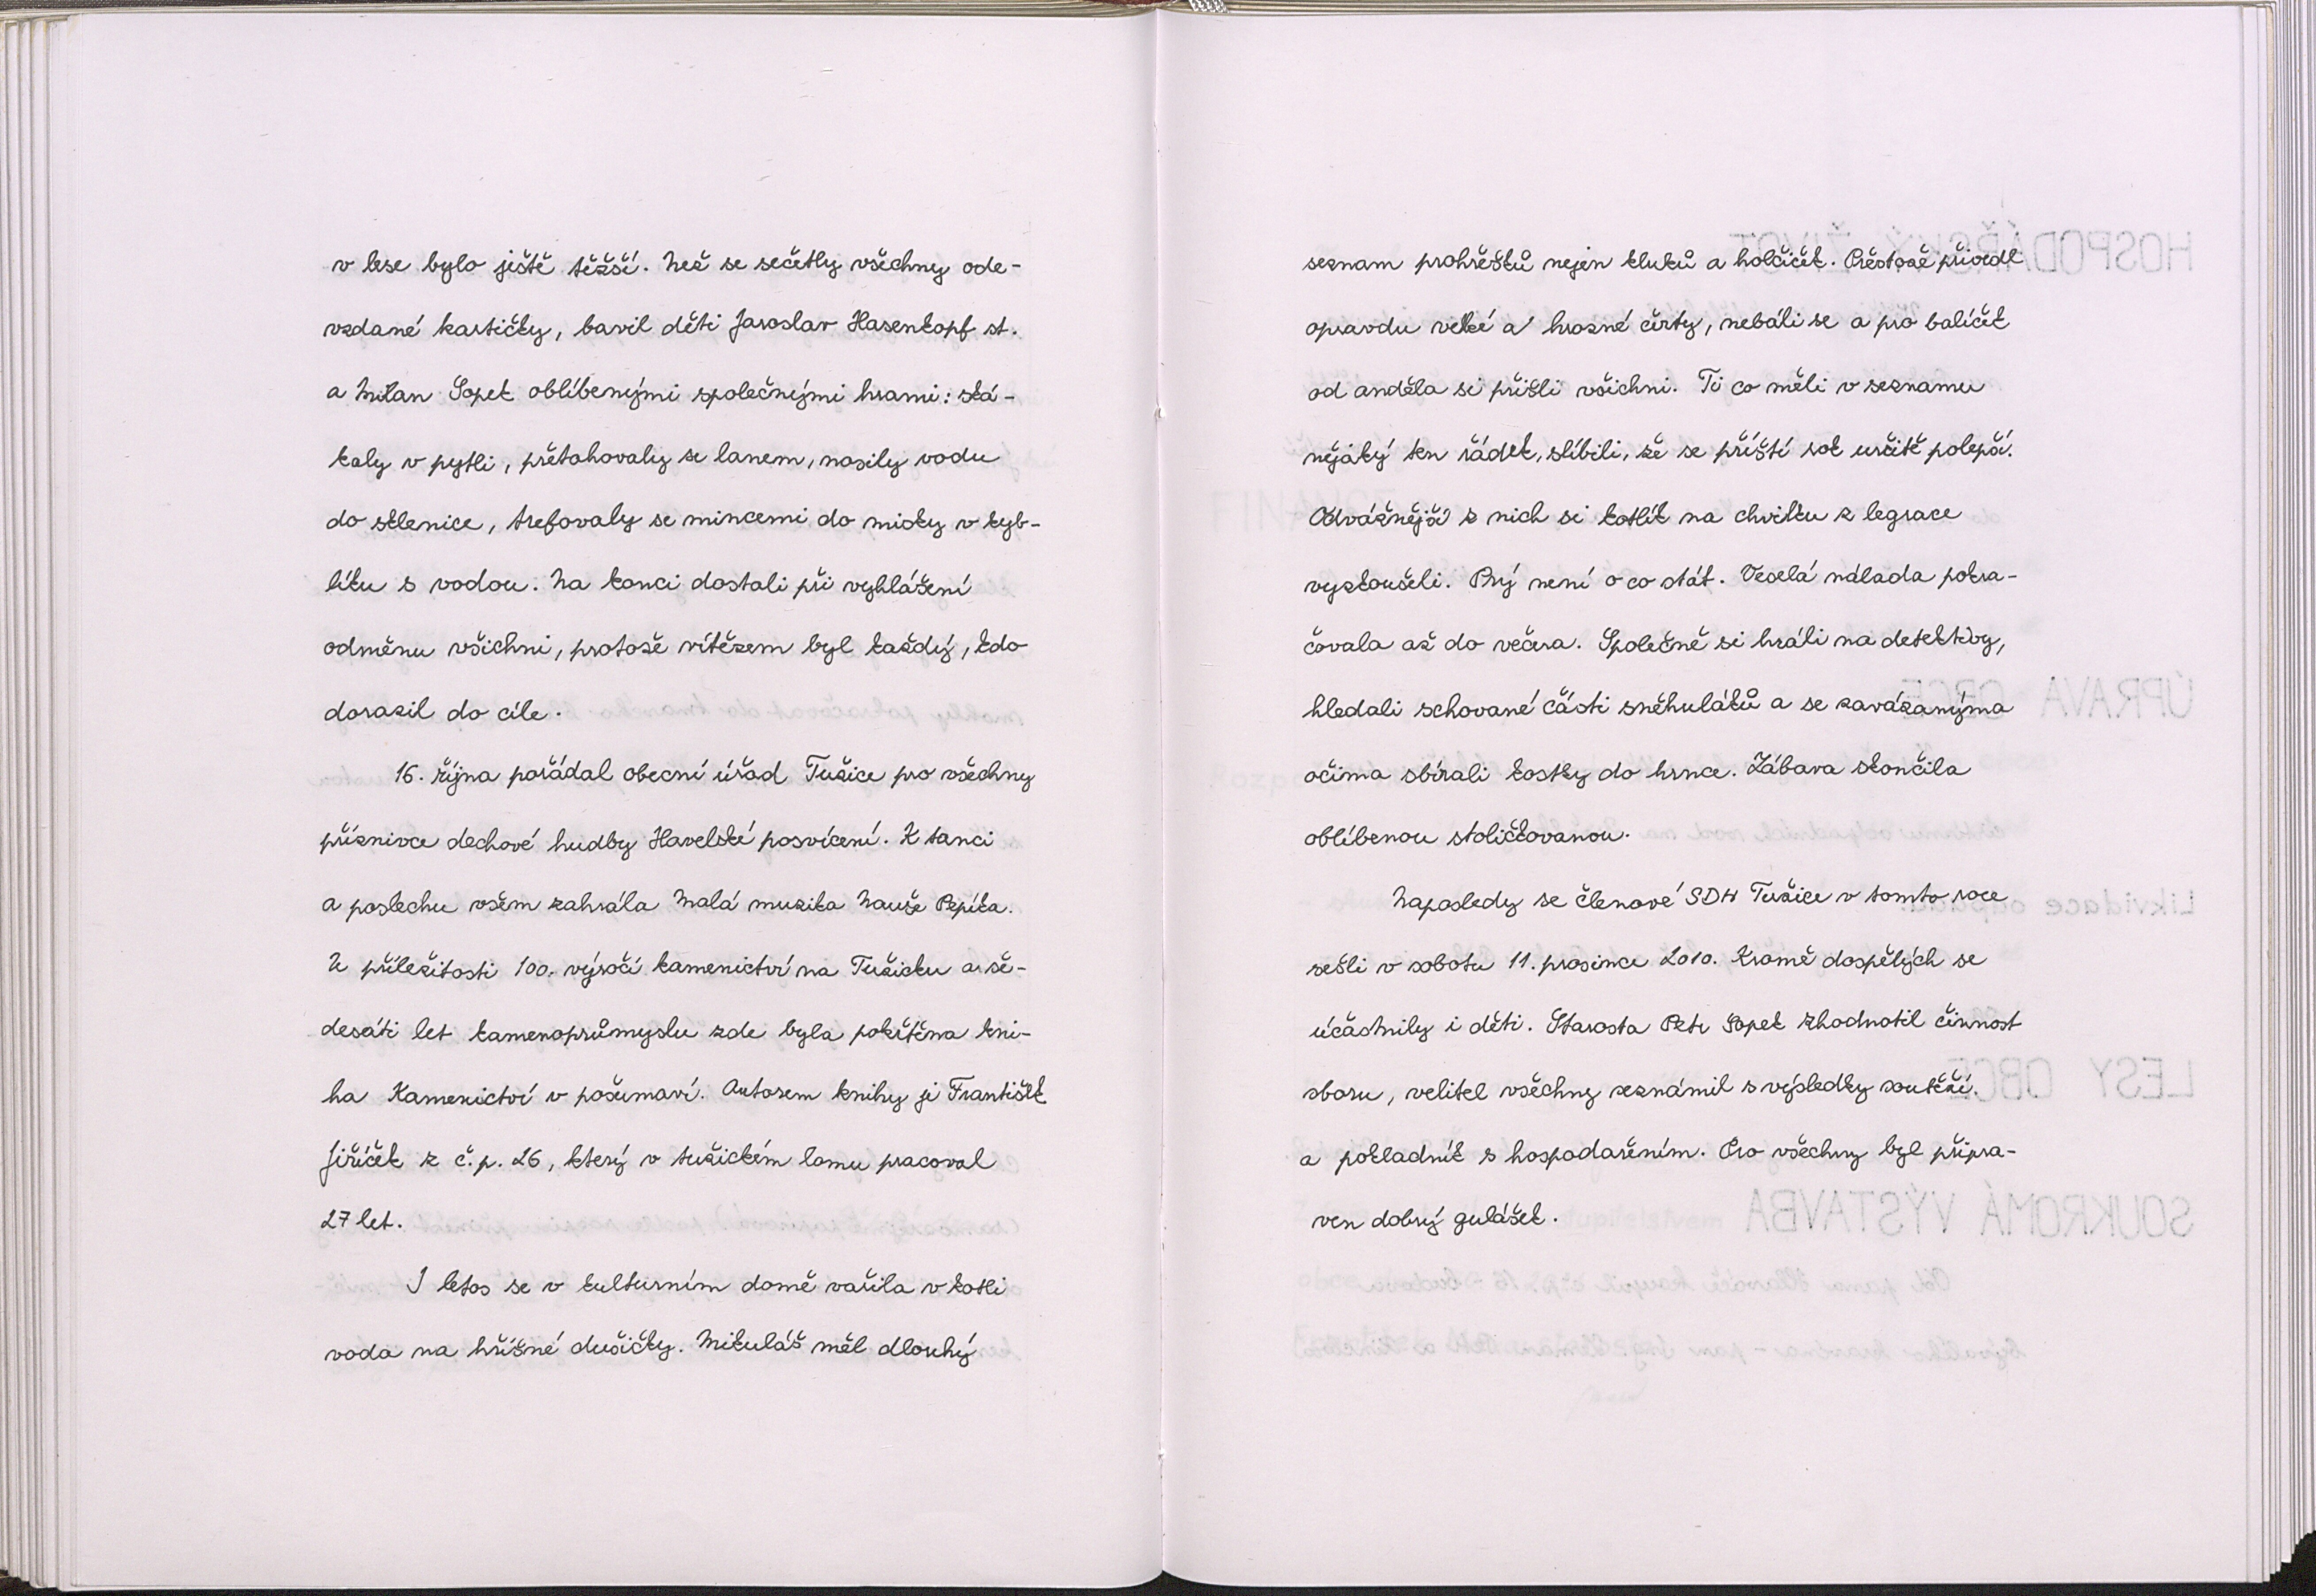 v lese bylo ještě těžší. Než se sečetly všechny ode-
vzdané kartičky, bavil děti Jaroslav Hasenkopf st.
a Milan Sopek oblíbenými společnými hrami: ská-
kaly v pytli, přetahovaly se lanem, nosily vodu
do sklenice, trefovaly se mincemi do misky v kýb-
líku s vodou. Na konci dostali při vyhlášení
odměnu všichni, protože vítězem byl každý, kdo
dorazil do cíle.
16. října pořádal obecní úřad Tužice pro všechny
příznivce dechové hudby Havelské posvícení. K tanci
a poslechu všem zahrála Malá muzika Nauše Pepíka.
U příležitosti 100. výročí kamenictví na Tužicku a še-
desáti let kamenoprůmyslu zde byla pokřtěna kni-
ha Kamenictví v pošumaví. Autorem knihy je František
Jiříček z č.p. 26, který v tužickém lomu pracoval
27 let.
I letos se v kulturním domě vařila v kotli
voda na hříšné dušičky. Mikuláš měl dlouhý
seznam prohřešků nejen kluků a holčiček. Přestože přivedl
opravdu velké a hrozné čerty, nebáli se a pro balíček
od anděla si přišli všichni. Ti co měli v seznamu
nějaký ten řádek, slíbili, že se příští rok určitě polepší.
Odvážnější z nich si kotlík na chvilku z legrace
vyzkoušeli. Prý není o co stát. Veselá nálada pokra-
čovala až do večera. Společně si hráli na detektivy,
hledali schované části sněhuláků a se zavázanýma
očima sbírali kostky do hrnce. Zábava skončila
oblíbenou stoličkovanou.
Naposledy se členové SDH Tužice v tomto roce
sešli v sobotu 11. prosince 2010. Kromě dospělých se
účastnily i děti. Starosta Petr Sopek zhodnotil činnost
sboru, velitel všechny seznámil s výsledky soutěží.
a pokladník s hospodařením. Pro všechny byl připra-
ven dobrý gulášek.